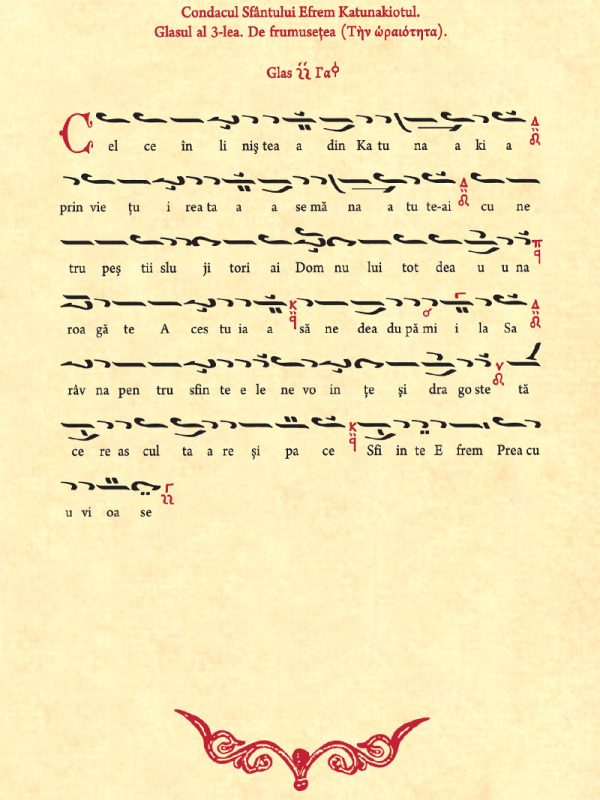 Condacul Sfântului Efrem Katunakiotul.
Glasul al 3-lea. De frumusețea (Τὴν ὡραιότητα).
Glas Γα
C el ce în li niş tea a din Ka tu na a ki a
prin vie țu i rea ta a a se mă na a tu te-ai cu ne
tru peş tii slu ji tori ai Dom nu lui tot dea u u na
roa gă te A ces tu ia a să ne dea du pă mi i la Sa
râv na pen tru sfin te e le ne vo in țe şi dra go ste tă
ce re as cul ta a re şi pa ce Sfi in te E frem Prea cu
u vi oa se